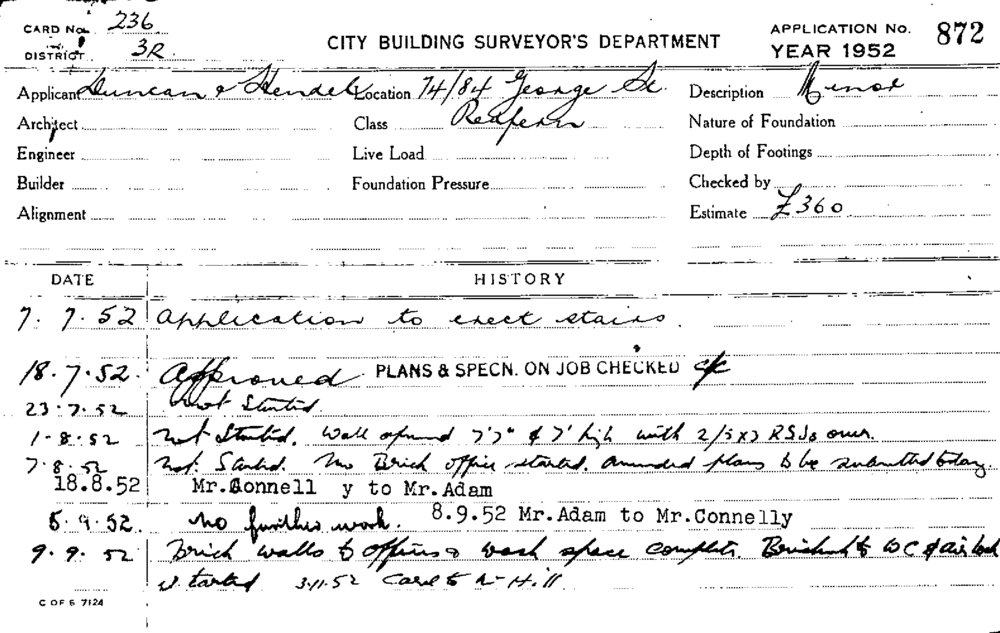 CARD No. 236
DISTRICT 3R
CITY BUILDING SURVEYOR'S DEPARTMENT
APPLICATION No. 872
YEAR 1952
Applicant Duncan & Location 74/84 George St. Description Minor
Architect Class Redfern Nature of Foundation
Engineer Live Load Depth of Footings
Builder Foundation Pressure Checked by
Alignment Estimate £360
DATE HISTORY
7. 7. 52 Application to erect stairs.
18.7.52. Approved PLANS & SPECN. ON JOB CHECKED
23.7.52 Not Started.
1.8.52 Not Started. Wall opened 7'7" & 7' high with 2/5x3 RSJs over.
7.8.52 Not Started. Brick office started. Amended plans to be submitted today.
18.8.52 Mr.Connell y to Mr.Adam
5.9.52. No further work. 8.9.52 Mr.Adam to Mr.Connelly
9.9.52 Brick walls to offices & wash space complete. Brickwork to WC & air lock
started 3.11.52 Card to Mr Hill
C OF S 7124